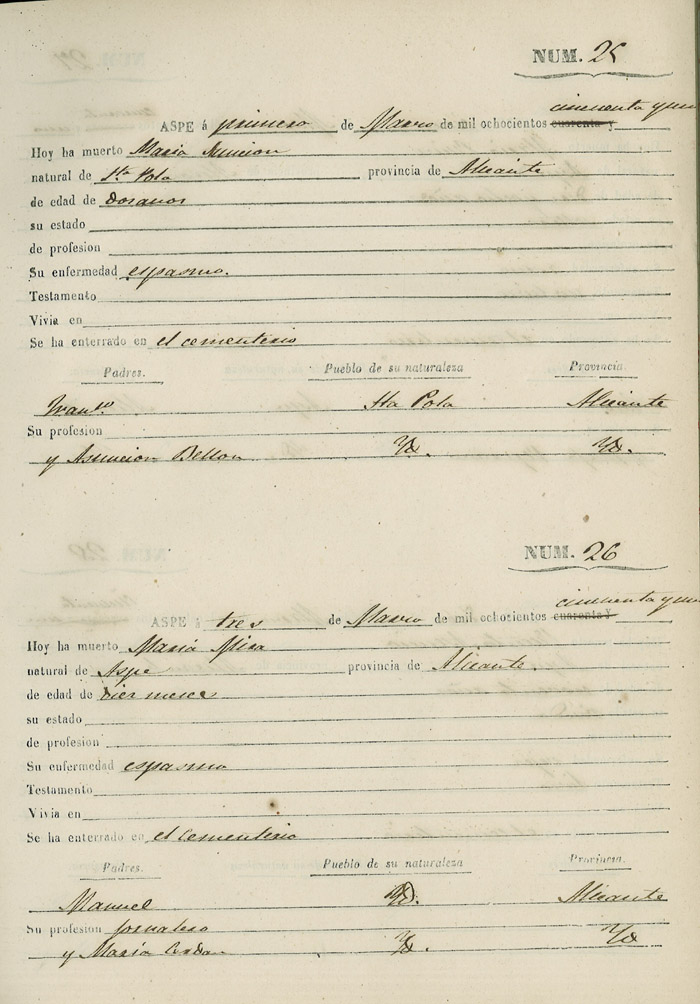 NUM. 25
cincuenta y un
ASPE á primero de Marzo de mil ochocientos cuarenta y
Hoy ha muerto Maria Asuncion
natural de Sta Pola provincia de Alicante
de edad de dos anos
su estado
de profesion
Su enfermedad espasmo.
Testamento
Vivia en
Se ha enterrado en el cementerio
Padres. Pueblo de su naturaleza Provincia.
Franco Sta Pola Alicante
Su profesion
y Asuncion Bellon Yd. Yd.
NUM. 26
cincuenta y un
ASPE á tres de Marzo de mil ochosientos cuarenta y
Hoy ha muerto Maria Mira
natural de Aspe provincia de Alicante.
de edad de diez meses
su estado
de profesion
Su enfermedad espasmo
Testamento
Vivia en
Se ha enterrado en el cementerio
Padres. Pueblo de su naturaleza Provincia.
Manuel Yd. Alicante
Su profesion jornalero
y Maria Yd. Yd